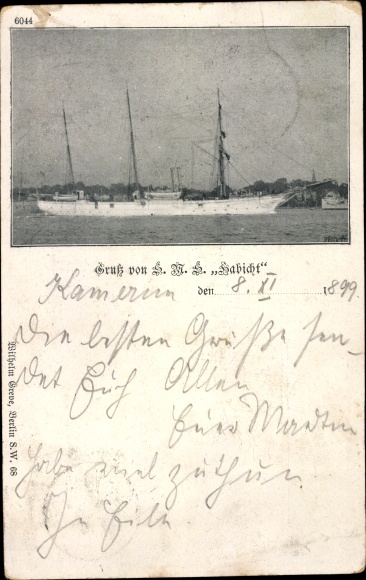 6044
Gruß von S. M. S. „Habicht“
Kamerun den 8. XI 1899.
Die besten Grüße sen-
det Euch Allen
Euer Martin
habe viel zu thun.
In Eile.
Wilhelm Greve, Berlin S.W. 68